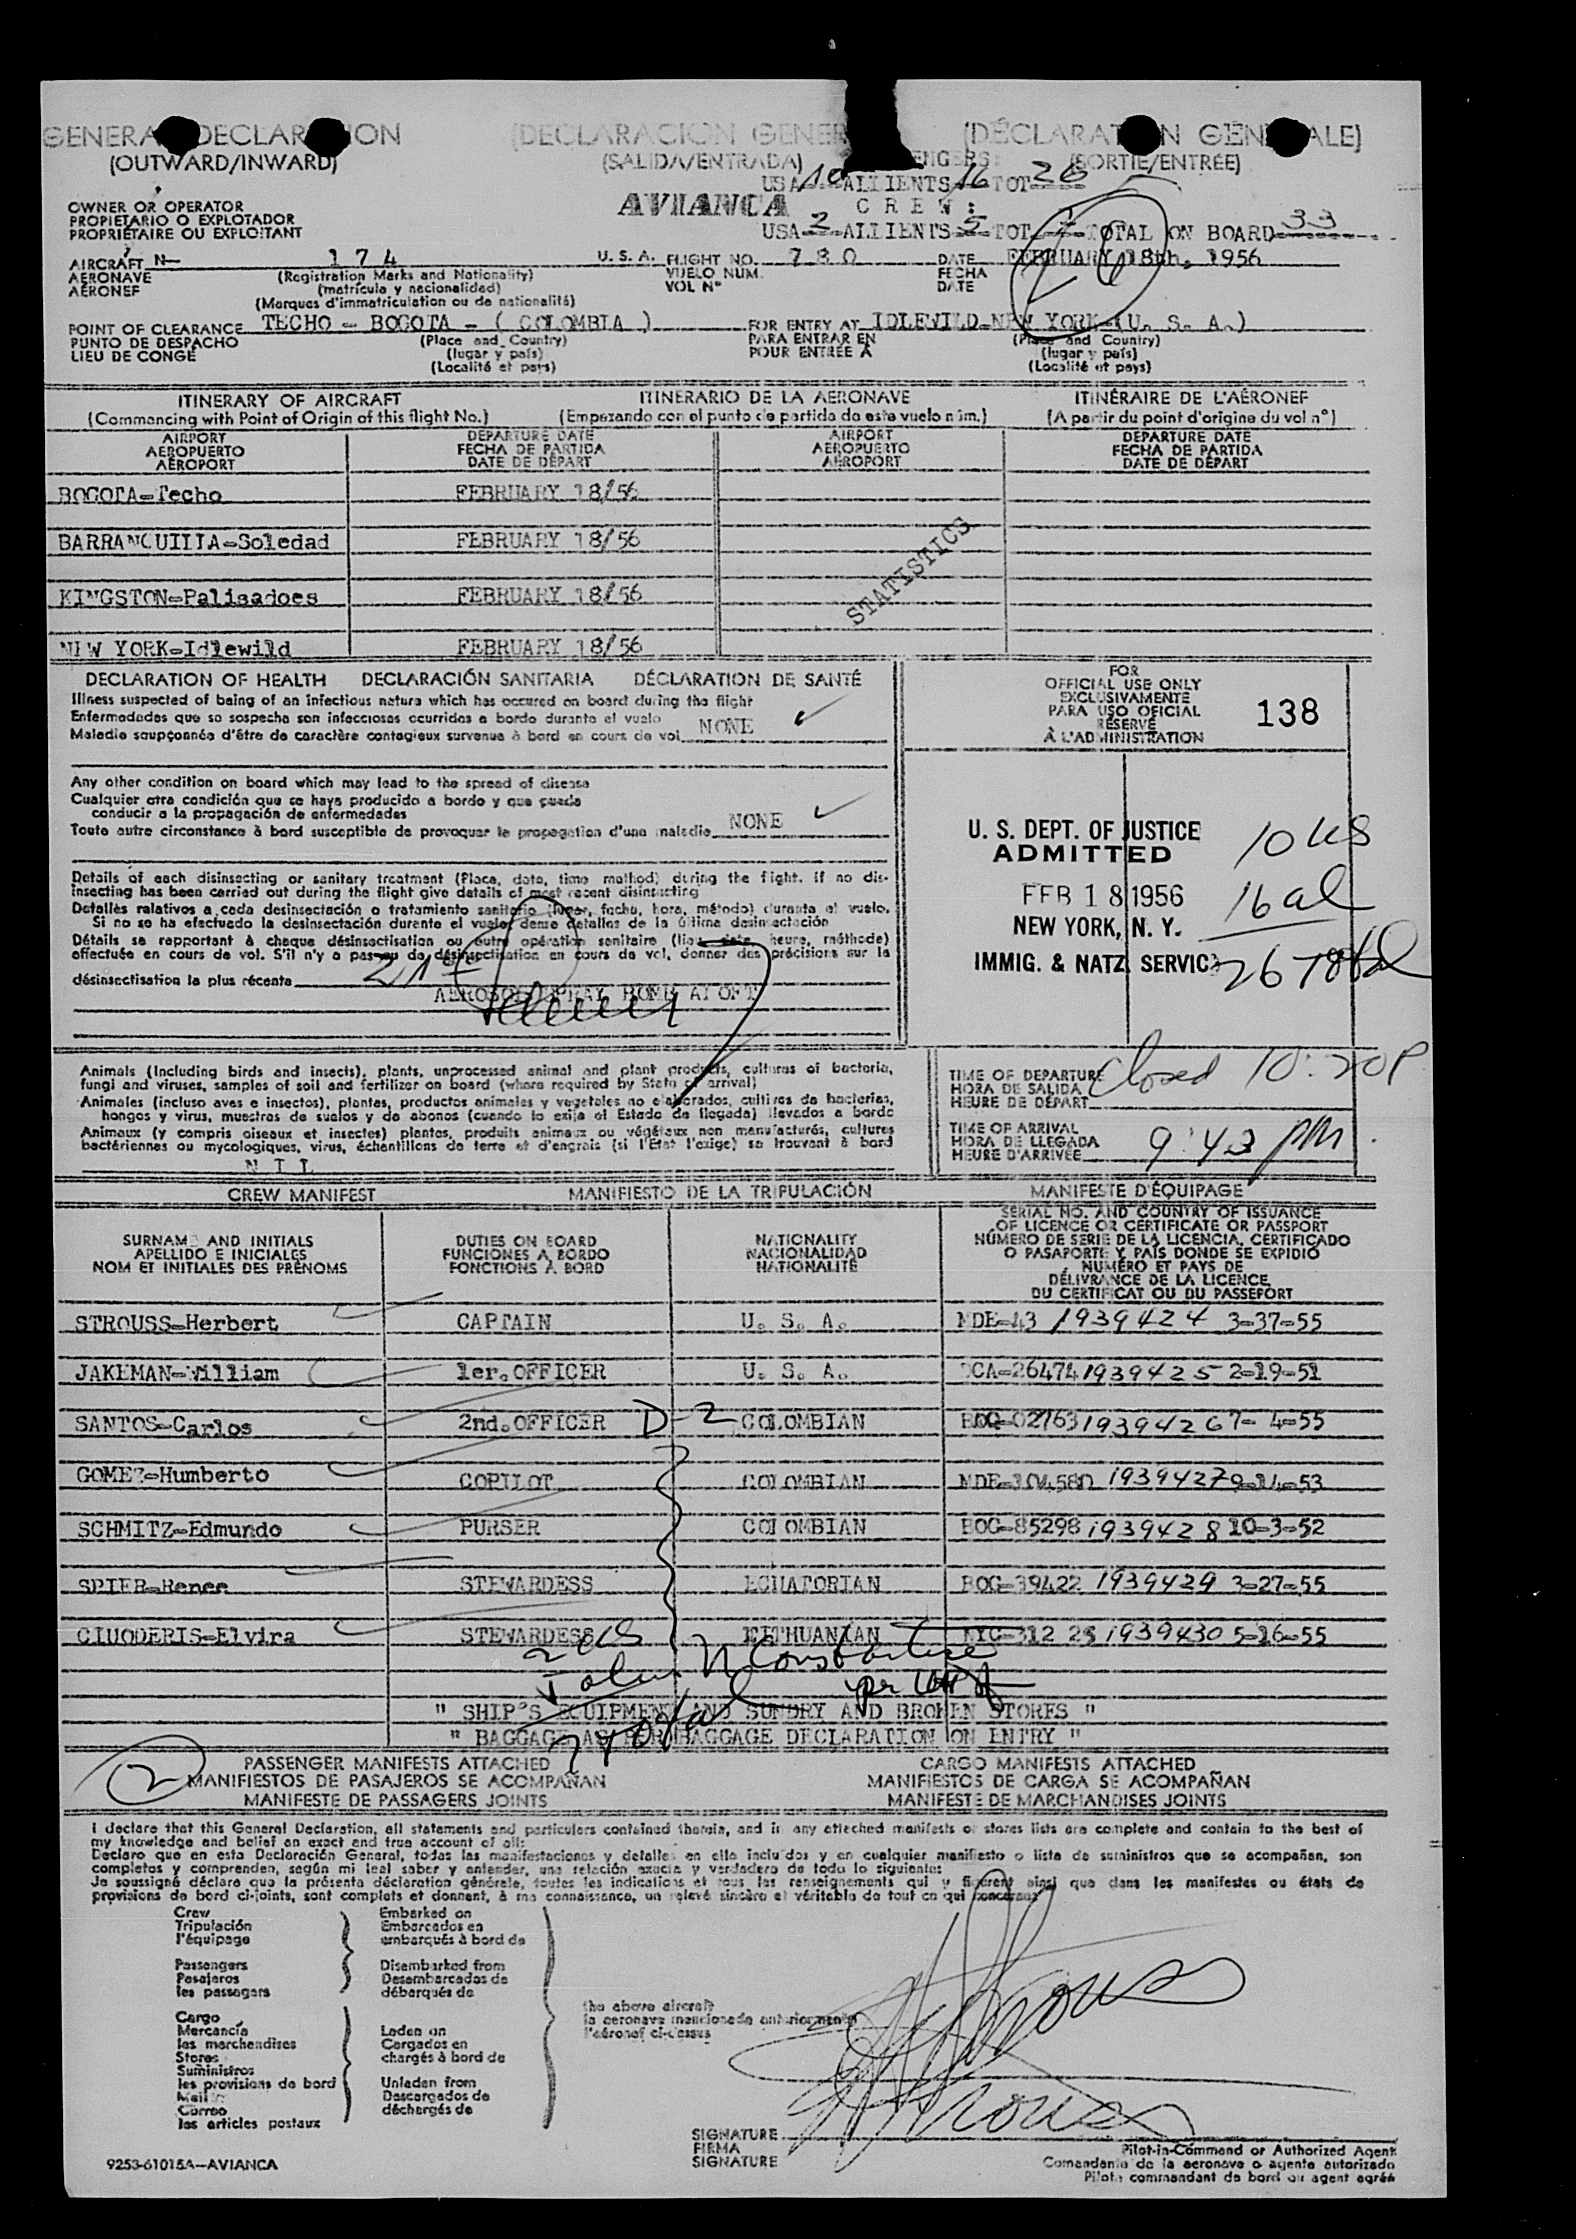 GENERAL DECLARATION (DECLARACION GENERAL) (DÉCLARATION GÉNÉRALE)
(OUTWARD/INWARD) (SALIDA/ENTRADA) (SORTIE/ENTRÉE)
USA 10 ALLIENTS 16 TOT 26
OWNER OR OPERATOR
PROPIETARIO O EXPLOTADOR
PROPRIÉTAIRE OU EXPLOITANT
AVIANCA
CREW:
USA 2 ALLIENTS 5 TOT 7 TOTAL ON BOARD 33
26
AIRCRAFT N- 174 U. S. A. FLIGHT NO. 780 DATE FEBRUARY 18th, 1956
AERONAVE (Registration Marks and Nationality) VUELO NUM. FECHA
AÉRONEF (matrícula y nacionalidad) VOL N° DATE
(Marques d'immatriculation ou de nationalité)
POINT OF CLEARANCE TECHO - BOGOTA - ( COLOMBIA ) FOR ENTRY AT IDLEWILD-NEW YORK-(U. S. A.)
PUNTO DE DESPACHO (Place and Country) PARA ENTRAR EN (Place and Country)
LIEU DE CONGÉ (lugar y país) POUR ENTRÉE A (lugar y país)
(Localité et pays) (Localité et pays)
ITINERARY OF AIRCRAFT ITINERARIO DE LA AERONAVE ITINÉRAIRE DE L'AÉRONEF
(Commencing with Point of Origin of this flight No.) (Empezando con el punto de partida de este vuelo núm.) (A partir du point d'origine du vol n°)
AIRPORT DEPARTURE DATE AIRPORT DEPARTURE DATE
AEROPUERTO FECHA DE PARTIDA AEROPUERTO FECHA DE PARTIDA
AÉROPORT DATE DE DÉPART AÉROPORT DATE DE DÉPART
BOGOTA-Techo FEBRUARY 18/56
BARRANQUILLA-Soledad FEBRUARY 18/56
KINGSTON-Palisadoes FEBRUARY 18/56
NEW YORK-Idlewild FEBRUARY 18/56
STATISTICS
DECLARATION OF HEALTH DECLARACIÓN SANITARIA DÉCLARATION DE SANTÉ
Illness suspected of being of an infectious nature which has occured on board during the flight
Enfermedades que se sospecha son infecciosas ocurridas a bordo durante el vuelo
Maladie soupçonnée d'être de caractère contagieux survenue à bord en cours de vol NONE
Any other condition on board which may lead to the spread of disease
Cualquier otra condición que se haya producido a bordo y que pueda
conducir a la propagación de enfermedades
Toute autre circonstance à bord susceptible de provoquer la propagation d'une maladie NONE
Details of each disinsecting or sanitary treatment (Place, date, time method) during the flight. If no dis-
insecting has been carried out during the flight give details of most recent disinsecting
Detalles relativos a cada desinsectación o tratamiento sanitario (lugar, fecha, hora, método) durante el vuelo.
Si no se ha efectuado la desinsectación durante el vuelo dense detalles de la última desinsectación
Détails se rapportant à chaque désinsectisation ou autre opération sanitaire (lieu, date, heure, méthode)
effectuée en cours de vol. S'il n'y a pas eu de désinsectisation en cours de vol, donner des précisions sur la
désinsectisation la plus récente
AEROSOL SPRAY BOMB ALOFT
FOR
OFFICIAL USE ONLY
EXCLUSIVAMENTE
PARA USO OFICIAL
RÉSERVÉ
À L'ADMINISTRATION
138
U. S. DEPT. OF JUSTICE
ADMITTED
FEB 18 1956
NEW YORK, N. Y.
IMMIG. & NATZ. SERVICE
10 US
16 al
26 Total
Animals (Including birds and insects), plants, unprocessed animal and plant products, cultures of bacteria,
fungi and viruses, samples of soil and fertilizer on board (where required by State of arrival)
Animales (incluso aves e insectos), plantas, productos animales y vegetales no elaborados, cultivos de bacterias,
hongos y virus, muestras de suelos y de abonos (cuando lo exija el Estado de llegada) llevados a bordo
Animaux (y compris oiseaux et insectes) plantes, produits animaux ou végétaux non manufacturés, cultures
bactériennes ou mycologiques, virus, échantillons de terre et d'engrais (si l'État l'exige) se trouvant à bord
NIL
TIME OF DEPARTURE
HORA DE SALIDA
HEURE DE DÉPART
Closed 10:20P
TIME OF ARRIVAL
HORA DE LLEGADA
HEURE D'ARRIVÉE
9:43 PM
CREW MANIFEST MANIFIESTO DE LA TRIPULACIÓN MANIFESTE D'ÉQUIPAGE
SURNAME AND INITIALS
APELLIDO E INICIALES
NOM ET INITIALES DES PRÉNOMS
DUTIES ON BOARD
FUNCIONES A BORDO
FONCTIONS À BORD
NATIONALITY
NACIONALIDAD
NATIONALITÉ
SERIAL NO. AND COUNTRY OF ISSUANCE
OF LICENCE OR CERTIFICATE OR PASSPORT
NÚMERO DE SERIE DE LA LICENCIA, CERTIFICADO
O PASAPORTE Y PAÍS DONDE SE EXPIDIÓ
NUMÉRO ET PAYS DE
DÉLIVRANCE DE LA LICENCE,
DU CERTIFICAT OU DU PASSEPORT
STROUSS-Herbert CAPTAIN U. S. A. MDE-43 1939424 3-37-55
JAKEMAN-William 1er. OFFICER U. S. A. OCA-26474 1939425 2-19-51
SANTOS-Carlos 2nd. OFFICER D-2 COLOMBIAN BOG-02763 1939426 7- 4-55
GOMEZ-Humberto COPILOT COLOMBIAN MDE-104580 1939427 9-14-53
SCHMITZ-Edmundo PURSER COLOMBIAN BOG-85298 1939428 10-3-52
SPIER-Renee STEWARDESS ECUATORIAN BOG-39422 1939429 3-27-55
CIUODERIS-Elvira STEWARDESS LITHUANIAN NYC-312 25 1939430 5-16-55
2 US
7 total
" SHIP'S EQUIPMENT AND SUNDRY AND BROKEN STORES "
" BAGGAGE AS PER BAGGAGE DECLARATION ON ENTRY "
2
PASSENGER MANIFESTS ATTACHED CARGO MANIFESTS ATTACHED
MANIFIESTOS DE PASAJEROS SE ACOMPAÑAN MANIFIESTOS DE CARGA SE ACOMPAÑAN
MANIFESTE DE PASSAGERS JOINTS MANIFESTE DE MARCHANDISES JOINTS
I declare that this General Declaration, all statements and particulars contained therein, and in any attached manifests or stores lists are complete and contain to the best of
my knowledge and belief an exact and true account of all:
Declaro que en esta Declaración General, todas las manifestaciones y detalles en ella incluidos y en cualquier manifiesto o lista de suministros que se acompañan, son
completos y comprenden, según mi leal saber y entender, una relación exacta y verdadera de todo lo siguiente:
Je soussigné déclare que la présente déclaration générale, toutes les indications et tous les renseignements qui y figurent ainsi que dans les manifestes ou états de
provisions de bord ci-joints, sont complets et donnent, à ma connaissance, un relevé sincère et véritable de tout ce qui concerne:
Crew Embarked on
Tripulación Embarcados en
l'équipage embarqués à bord de
Passengers Disembarked from
Pasajeros Desembarcados de
les passagers débarqués de
Cargo
Mercancía Laden on
les marchandises Cargados en
Stores chargés à bord de
Suministros
les provisions de bord Unladen from
Mail Descargados de
Correo déchargés de
les articles postaux
the above aircraft
la aeronave mencionada anteriormente
l'aéronef ci-dessus
SIGNATURE
FIRMA
SIGNATURE
Pilot-in-Command or Authorized Agent
Comandante de la aeronave o agente autorizado
Pilote commandant de bord ou agent agréé
9253-61015A—AVIANCA